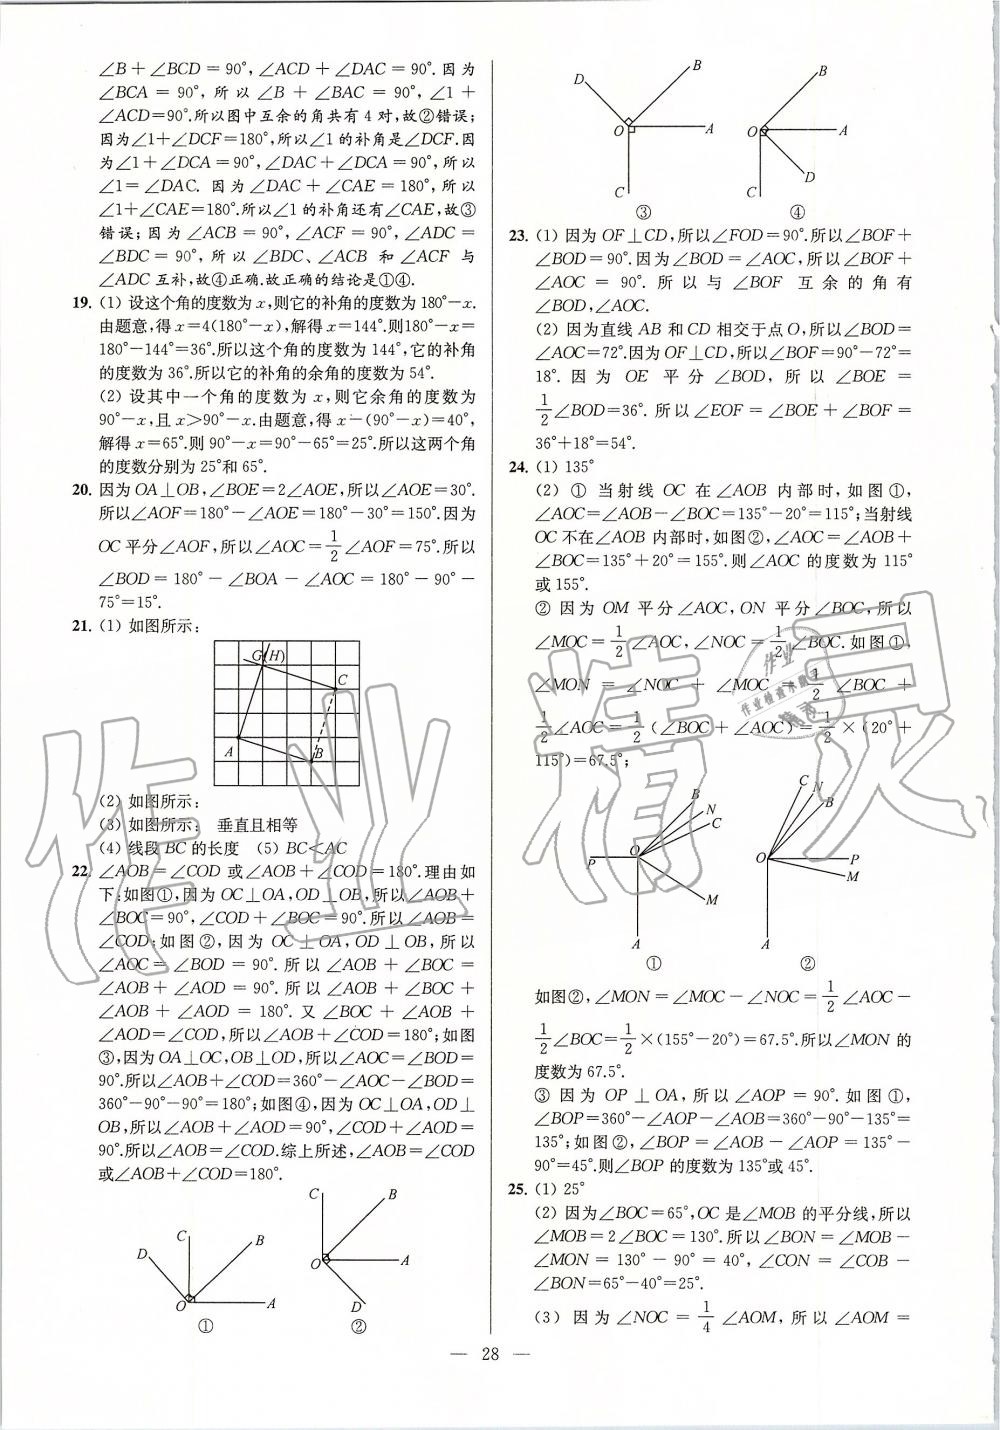 ∠B＋∠BCD＝90°,∠ACD＋∠DAC＝90°.因为
∠BCA＝90°,所以∠B＋∠BAC＝90°,∠1＋
∠ACD=90°.所以图中互余的角共有4对,故②错误;
因为∠1＋∠DCF＝180°,所以∠1的补角是∠DCF.因
为∠1＋∠DCA＝90°,∠DAC＋∠DCA＝90°,所以
∠1＝∠DAC. 因为∠DAC＋∠CAE＝180°,所以
∠1＋∠CAE＝180°.所以∠1的补角还有∠CAE,故③
错误;因为∠ACB＝90°,∠ACF＝90°,∠ADC＝
∠BDC＝90°,所以∠BDC、∠ACB和∠ACF与
∠ADC互补,故④正确.故正确的结论是①④.
19. (1) 设这个角的度数为x,则它的补角的度数为180°－x.
由题意,得x＝4(180°－x),解得x＝144°.则180°－x＝
180°－144°＝36°.所以这个角的度数为144°,它的补角
的度数为36°.所以它的补角的余角的度数为54°.
(2) 设其中一个角的度数为x,则它余角的度数为
90°－x,且x＞90°－x.由题意,得x－(90°－x)＝40°,
解得x＝65°.则90°－x＝90°－65°＝25°.所以这两个角
的度数分别为25°和65°.
20. 因为OA⊥OB,∠BOE＝2∠AOE,所以∠AOE＝30°.
所以∠AOF＝180°－∠AOE＝180°－30°＝150°.因为
OC平分∠AOF,所以∠AOC＝1/2∠AOF＝75°.所以
∠BOD＝180°－∠BOA－∠AOC＝180°－90°－
75°＝15°.
21. (1) 如图所示:
G(H)
C
A
B
(2) 如图所示:
(3) 如图所示: 垂直且相等
(4) 线段BC的长度 (5) BC＜AC
22. ∠AOB＝∠COD或∠AOB＋∠COD＝180°.理由如
下:如图①,因为OC⊥OA,OD⊥OB,所以∠AOB＋
∠BOC＝90°,∠COD＋∠BOC＝90°.所以∠AOB＝
∠COD;如图②,因为OC⊥OA,OD⊥OB,所以
∠AOC＝∠BOD＝90°.所以∠AOB＋∠BOC＝
∠AOB＋∠AOD＝90°.所以∠AOB＋∠BOC＋
∠AOB＋∠AOD＝180°.又∠BOC＋∠AOB＋
∠AOD＝∠COD,所以∠AOB＋∠COD＝180°;如图
③,因为OA⊥OC,OB⊥OD,所以∠AOC＝∠BOD＝
90°.所以∠AOB＋∠COD＝360°－∠AOC－∠BOD＝
360°－90°－90°＝180°;如图④,因为OC⊥OA,OD⊥
OB,所以∠AOB＋∠AOD＝90°,∠COD＋∠AOD＝
90°.所以∠AOB＝∠COD.综上所述,∠AOB＝∠COD
或∠AOB＋∠COD＝180°.
D C B O A
①
C B O A D
②
D B O A C
③
B O A D C
④
23. (1) 因为OF⊥CD,所以∠FOD＝90°.所以∠BOF＋
∠BOD＝90°.因为∠BOD＝∠AOC,所以∠BOF＋
∠AOC＝90°.所以与∠BOF互余的角有
∠BOD,∠AOC.
(2) 因为直线AB和CD相交于点O,所以∠BOD＝
∠AOC＝72°.因为OF⊥CD,所以∠BOF＝90°－72°＝
18°.因为OE平分∠BOD,所以∠BOE＝
1/2∠BOD＝36°.所以∠EOF＝∠BOE＋∠BOF＝
36°＋18°＝54°.
24. (1) 135°
(2) ① 当射线OC在∠AOB内部时,如图①,
∠AOC＝∠AOB－∠BOC＝135°－20°＝115°;当射线
OC不在∠AOB内部时,如图②,∠AOC＝∠AOB＋
∠BOC＝135°＋20°＝155°.则∠AOC的度数为115°
或155°.
② 因为OM平分∠AOC,ON平分∠BOC,所以
∠MOC＝1/2∠AOC,∠NOC＝1/2∠BOC.如图①,
∠MON＝∠NOC＋∠MOC＝1/2∠BOC＋
1/2∠AOC＝1/2(∠BOC＋∠AOC)＝1/2×(20°＋
115°)＝67.5°;
B N C P O M A
①
C N B O P M A
②
如图②,∠MON＝∠MOC－∠NOC＝1/2∠AOC－
1/2∠BOC＝1/2×(155°－20°)＝67.5°.所以∠MON的
度数为67.5°.
③ 因为OP⊥OA,所以∠AOP＝90°.如图①,
∠BOP＝360°－∠AOP－∠AOB＝360°－90°－135°＝
135°;如图②,∠BOP＝∠AOB－∠AOP＝135°－
90°＝45°.则∠BOP的度数为135°或45°.
25. (1) 25°
(2) 因为∠BOC＝65°,OC是∠MOB的平分线,所以
∠MOB＝2∠BOC＝130°.所以∠BON＝∠MOB－
∠MON＝130°－90°＝40°,∠CON＝∠COB－
∠BON＝65°－40°＝25°.
(3) 因为∠NOC＝1/4∠AOM,所以∠AOM＝
— 28 —
作业精灵